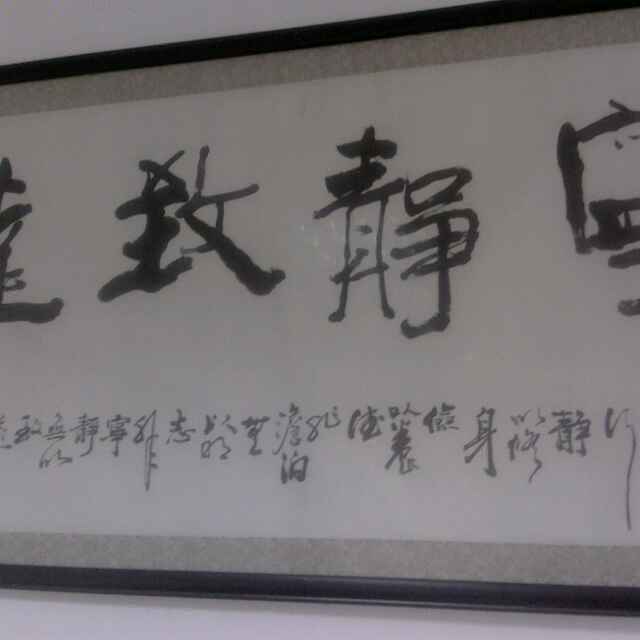 寧靜致遠
行靜以修身儉以養德非澹泊無以明志非寧靜無以致遠